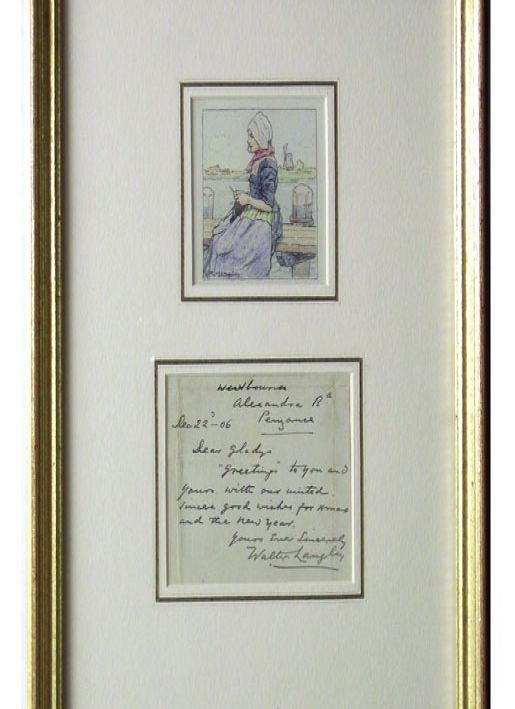 Westbourne
Alexandra Rd
Dec 22d - 06 Penzance
Dear Gladys
"Greetings" to you and
yours with our united
sincere good wishes for Xmas
and the New Year.
Yours Ever Sincerely
Walter Langley